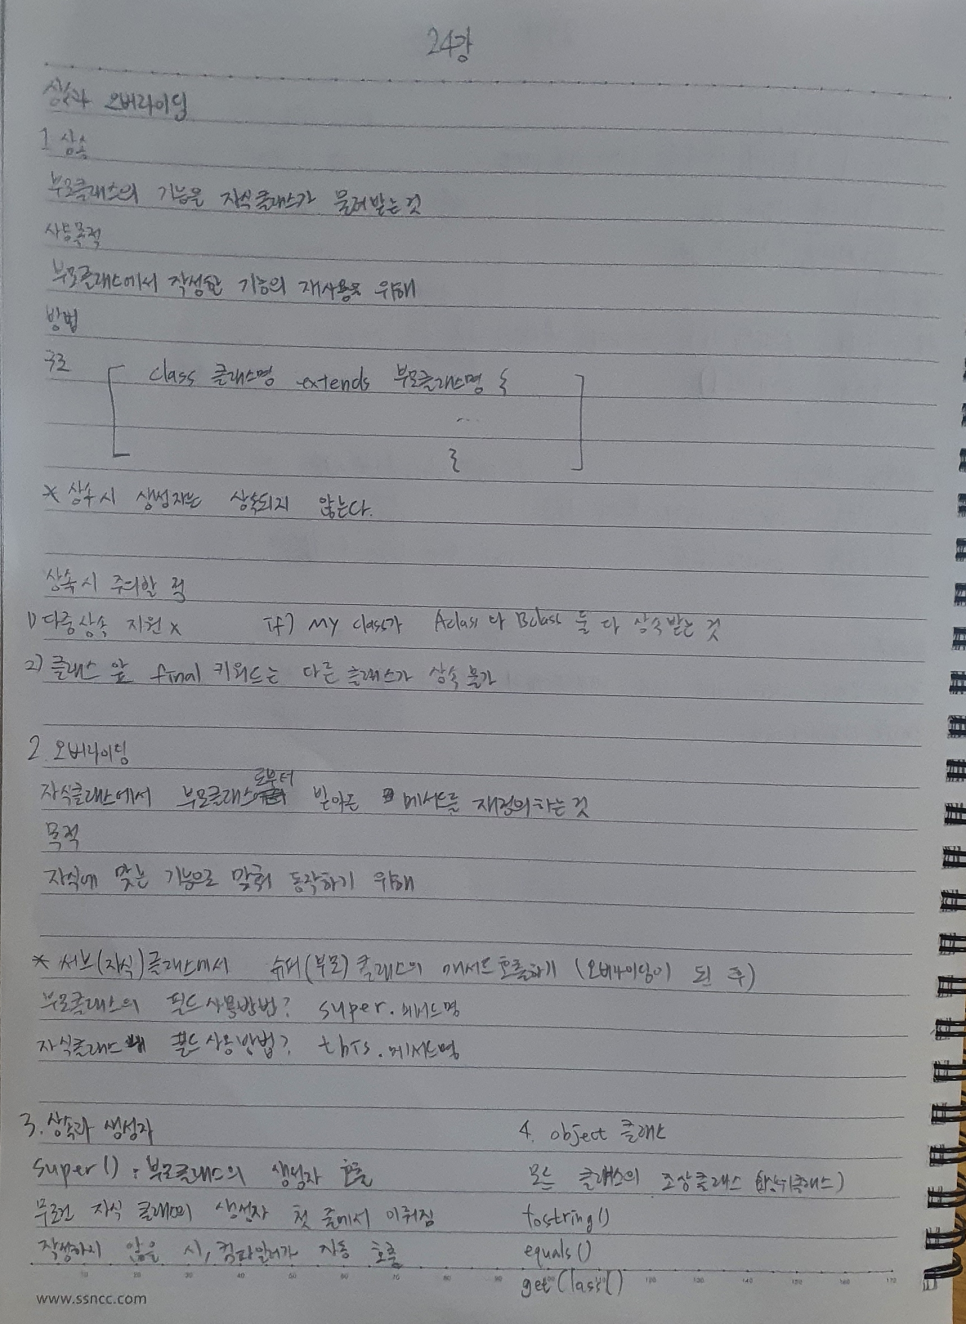 24강
상속과 오버라이딩
1 상속
부모클래스의 기능을 자식클래스가 물려받는 것
사용목적
부모클래스에서 작성한 기능의 재사용을 위해
방법
구조
class 클래스명 extends 부모클래스명 {
...
}
* 상속시 생성자는 상속되지 않는다.
상속시 주의할 점
1) 다중상속 지원 x If) My class가 Aclass 다 Bclass 둘 다 상속받는 것
2) 클래스 앞 final 키워드는 다른 클래스가 상속 불가
2 오버라이딩
자식클래스에서 부모클래스로부터 받아온 메서드를 재정의하는 것
목적
자식에 맞는 기능으로 맞춰 동작하기 위해
* 서브(자식)클래스에서 슈퍼(부모)클래스의 메서드 호출하기 (오버라이딩이 된 후)
부모클래스의 필드 사용방법? super.메서드명
자식클래스 필드 사용방법? this.메서드명
3. 상속과 생성자
super() : 부모클래스의 생성자 호출
무조건 자식 클래스의 생성자 첫 줄에서 이뤄짐
작성하지 않을 시, 컴파일러가 자동 호출
4. object 클래스
모든 클래스의 조상클래스 (상위클래스)
tostring()
equals()
getClass()
www.ssncc.com